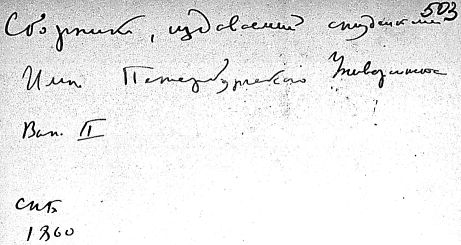 503
Сборник, издаваемый студентами
Имп. Петербургского Университета
Вып. II
СПБ
1860